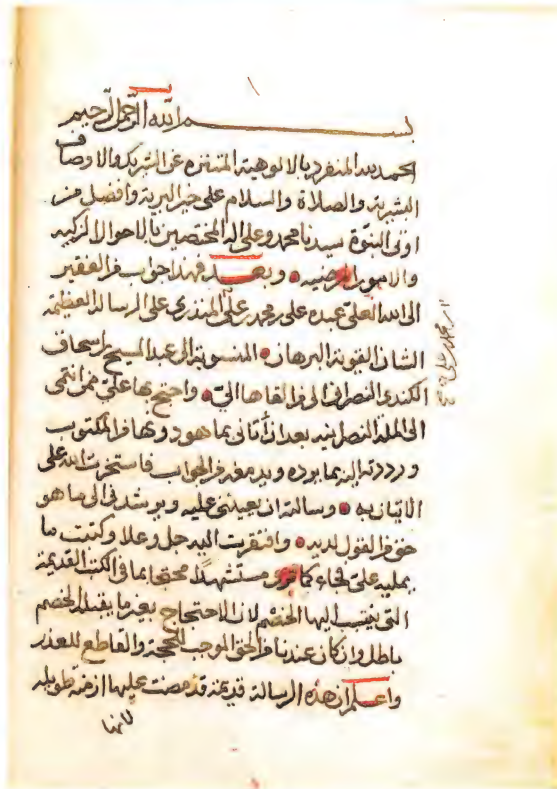 بسم الله الرحمن الرحيم
الحمد لله المنفرد بالالوهية المتنزه عن الشريك والاوصاف
البشرية والصلاة والسلام على خير البرية وافضل من
اوتى النبوة سيدنا محمد وعلى اله المختصين بالاحوال الزكيه
والامور المرضيه وبعد فهذا جواب من الفقير
الى الله العلي عبده على بن محمد بن على المنذري على الرسالة العظيمة
الشان القوية البرهان المنسوبة الى عبد المسيح بن اسحاق
الكندي النصراني الى من القاها الي واحتج بها علي ممن انتمى
الى الملة النصرانيه بعد ان أتاني بما هو دونها من المكتوب
ورددته اليه بما يرده ويدمغه من الجواب فاستخرت الله على
الاتيان به وسالته ان يعينني عليه ويرشدني الى ما هو
حق من القول لديه وافتقرت اليه جل وعلا وكتبت ما
يمليه علي فجاء كما ترى مستشهدا محتجا بما في الكتب القديمة
التي ينتسب اليها الخصم لان الاحتجاج بغير ما يقبله الخصم
باطل وان كان عندنا هو الحق الموجب للحجة والقاطع للعذر
واعلم ان هذه الرسالة قديمة قد مضت عليها ازمنة طويله
لانها
محمد بن علي